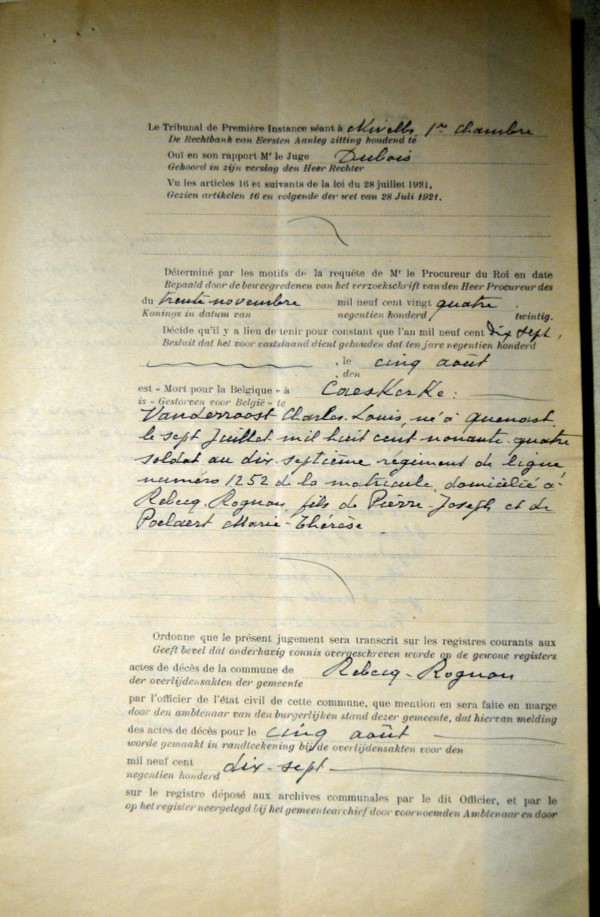 Le Tribunal de Première Instance séant à Nivelles, 1re Chambre
De Rechtbank van Eersten Aanleg zitting houdend te
Oui en son rapport Mr le Juge Dubois
Gehoord in zijn verslag den Heer Rechter
Vu les articles 16 et suivants de la loi du 28 juillet 1921,
Gezien artikelen 16 en volgende der wet van 28 Juli 1921.
Déterminé par les motifs de la requête de Mr le Procureur du Roi en date
Bepaald door de beweegredenen van het verzoekschrift van den Heer Procureur des
du trente novembre mil neuf cent vingt quatre
Konings in datum van negentien honderd twintig.
Décide qu'il y a lieu de tenir pour constant que l'an mil neuf cent dix sept,
Besluit dat het voor vaststaand dient gehouden dat ten jare negentien honderd
, le cinq août
, den
est « Mort pour la Belgique » à Caeskerke :
is « Gestorven voor België » te
Vanderroost Charles-Louis, né à Quenast,
le sept Juillet mil huit cent nonante-quatre
soldat au dix-septième régiment de ligne
numéro 1252 de la matricule, domicilié à
Rebecq-Rognon, fils de Pierre-Joseph et de
Poelaert Marie-Thérèse.
Ordonne que le présent jugement sera transcrit sur les registres courants aux
Geeft bevel dat onderhavig vonnis overgeschreven worde op de gewone registers
actes de décès de la commune de Rebecq-Rognon
der overlijdensakten der gemeente
par l'officier de l'état civil de cette commune, que mention en sera faite en marge
door den ambtenaar van den burgerlijken stand dezer gemeente, dat hiervan melding
des actes de décès pour le cinq août
worde gemaakt in randteekening bij de overlijdensakten voor den
mil neuf cent dix-sept
negentien honderd
sur le registre déposé aux archives communales par le dit Officier, et par le
op het register neergelegd bij het gemeentearchief door voornoemden Ambtenaar en door